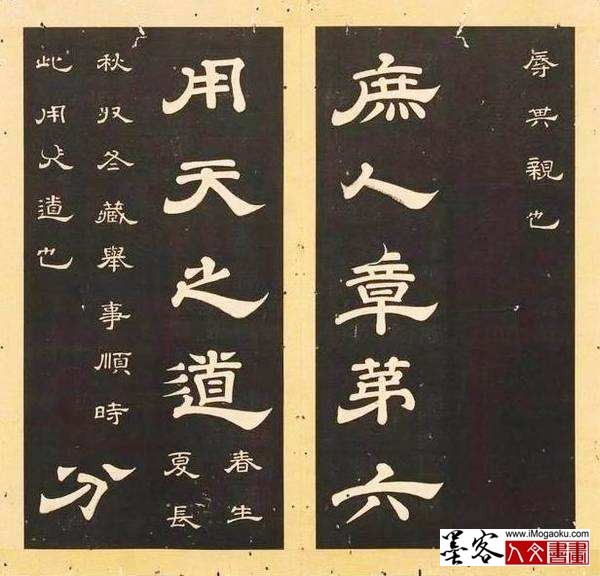 辱其親也
庶人章第六
用天之道
春生
夏長
秋收冬藏舉事順時
此用天道也
分
墨客
www.iMogaoku.com
人文書畫